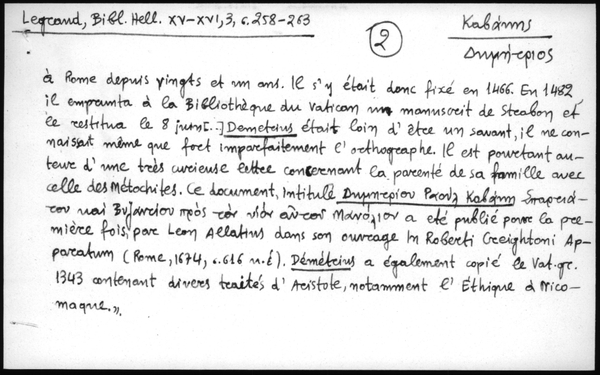 Legrand, Bibl. Hell. XV-XVI, 3, σ. 258-263
2
Καβάκης
Δημήτριος
à Rome depuis vingts et un ans. Il s'y était donc fixé en 1466. En 1482
il emprunta à la Bibliothèque du Vatican un manuscrit de Strabon et
le restitua le 8 juin [..] Demetrius était loin d'être un savant, il ne con-
naissait même que fort imparfaitement l'orthographe. Il est pourtant au-
teur d'une très curieuse lettre concernant la parenté de sa famille avec
celle des Métochites. Ce document, intitulé Δημητρίου Ραουλ Καβάκη Σπαρτιά-
του και Βυζαντίου πρὸς τὸν υἱὸν αὐτοῦ Μανόλιον a été publié pour la pre-
mière fois, par Leon Allatius dans son ouvrage In Roberti Creightoni Ap-
paratum (Rome, 1674, σ. 616 κ.ἑ). Démétrius a également copié le Vat. gr.
1343 contenant divers traités d'Aristote, notamment l'Éthique à Nico-
maque.»